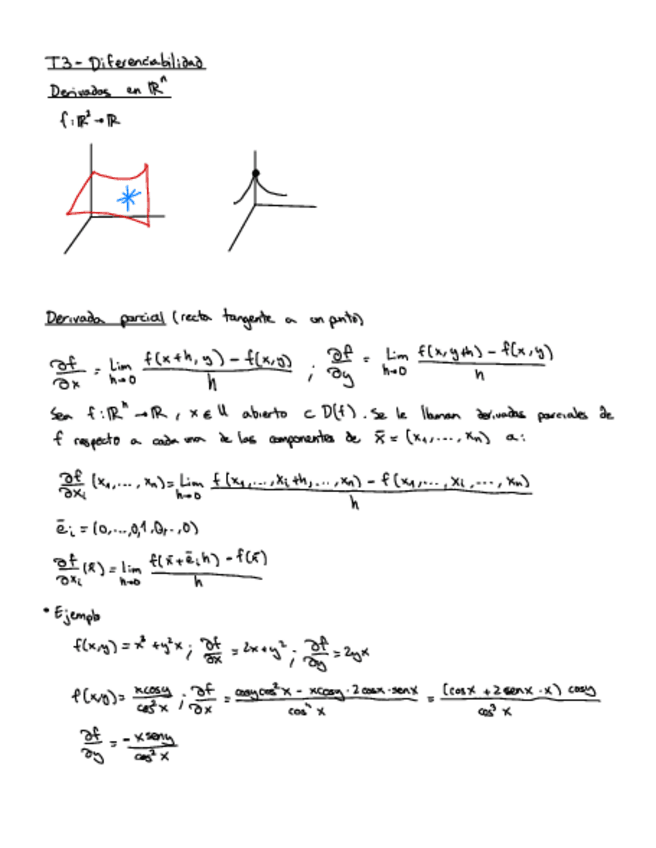 T3 - Diferenciabilidad
Derivadas en ℝⁿ
f: ℝ² → ℝ
Derivada parcial (recta tangente a un punto)
∂f/∂x = lim h→0 (f(x+h, y) - f(x,y))/h ; ∂f/∂y = lim h→0 (f(x,y+h) - f(x,y))/h
Sea f: ℝⁿ → ℝ, x ∈ U abierto ⊂ D(f). Se le llaman derivadas parciales de
f respecto a cada una de las componentes de x̄ = (x₁, ..., xₙ) a:
∂f/∂xᵢ (x₁, ..., xₙ) = lim h→0 (f(x₁, ..., xᵢ+h, ..., xₙ) - f(x₁, ..., xᵢ, ..., xₙ))/h
ēᵢ = (0, ..., 0, 1, 0, ..., 0)
∂f/∂xᵢ (x̄) = lim h→0 (f(x̄+ēᵢh) - f(x̄))/h
• Ejemplo
f(x,y) = x² + y²x ; ∂f/∂x = 2x + y² ; ∂f/∂y = 2yx
f(x,y) = xcosy/cos²x ; ∂f/∂x = (cosycos²x - xcosy·2cosx·senx)/cos⁴x = ((cosx + 2senx·x) cosy)/cos³x
∂f/∂y = -xseny/cos²x